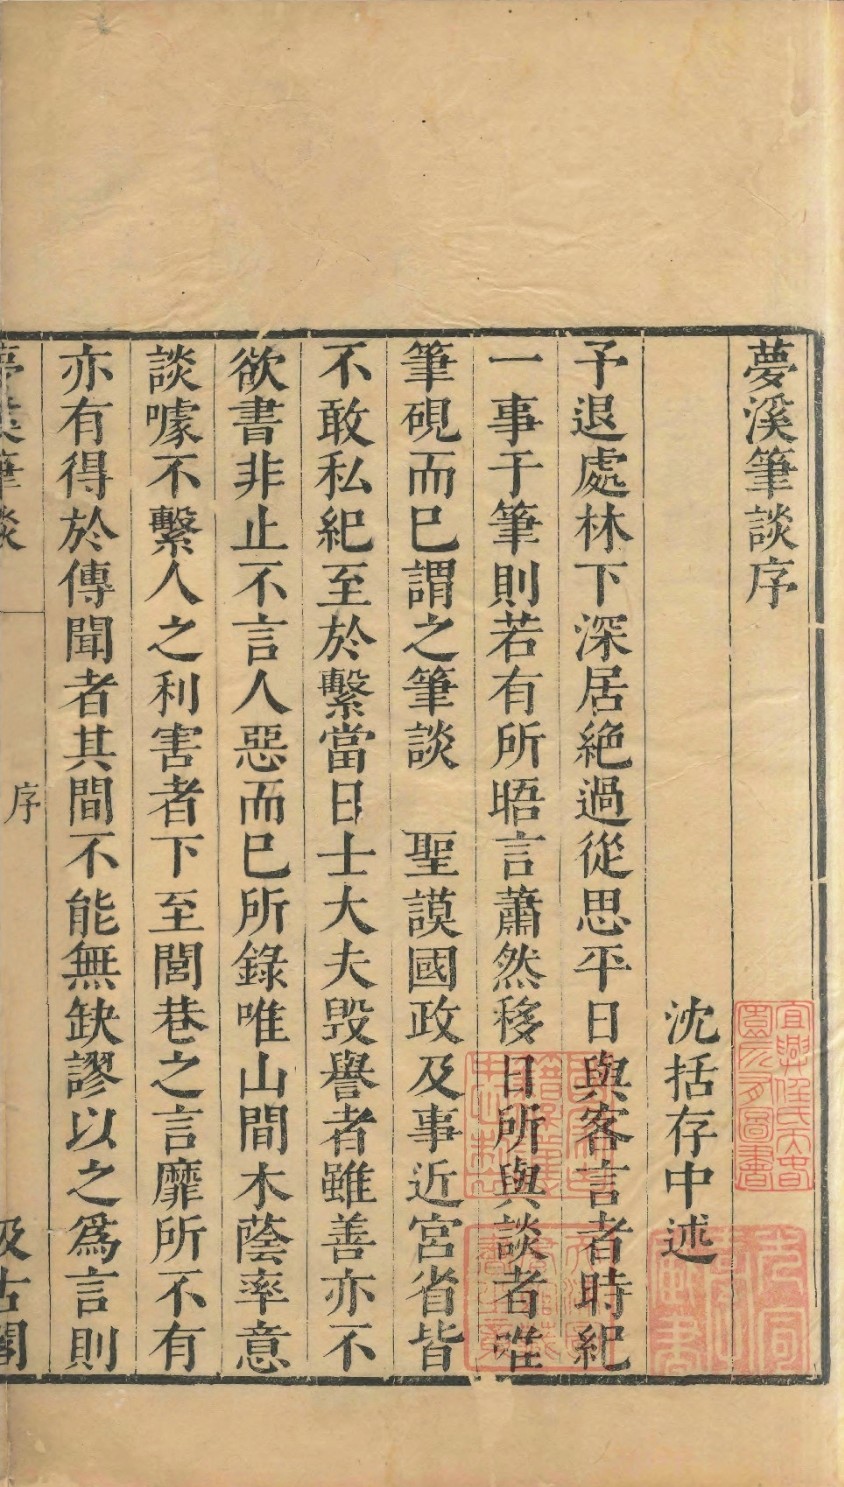 夢溪筆談序
沈括存中述
予退處林下深居絶過從思平日與客言者時紀
一事于筆則若有所晤言蕭然移日所與談者唯
筆硯而已謂之筆談　聖謨國政及事近宮省皆
不敢私紀至於繫當日士大夫毀譽者雖善亦不
欲書非止不言人惡而已所錄唯山間木蔭率意
談噱不繫人之利害者下至閭巷之言靡所不有
亦有得於傳聞者其間不能無缺謬以之爲言則
夢溪筆談
序
汲古閣